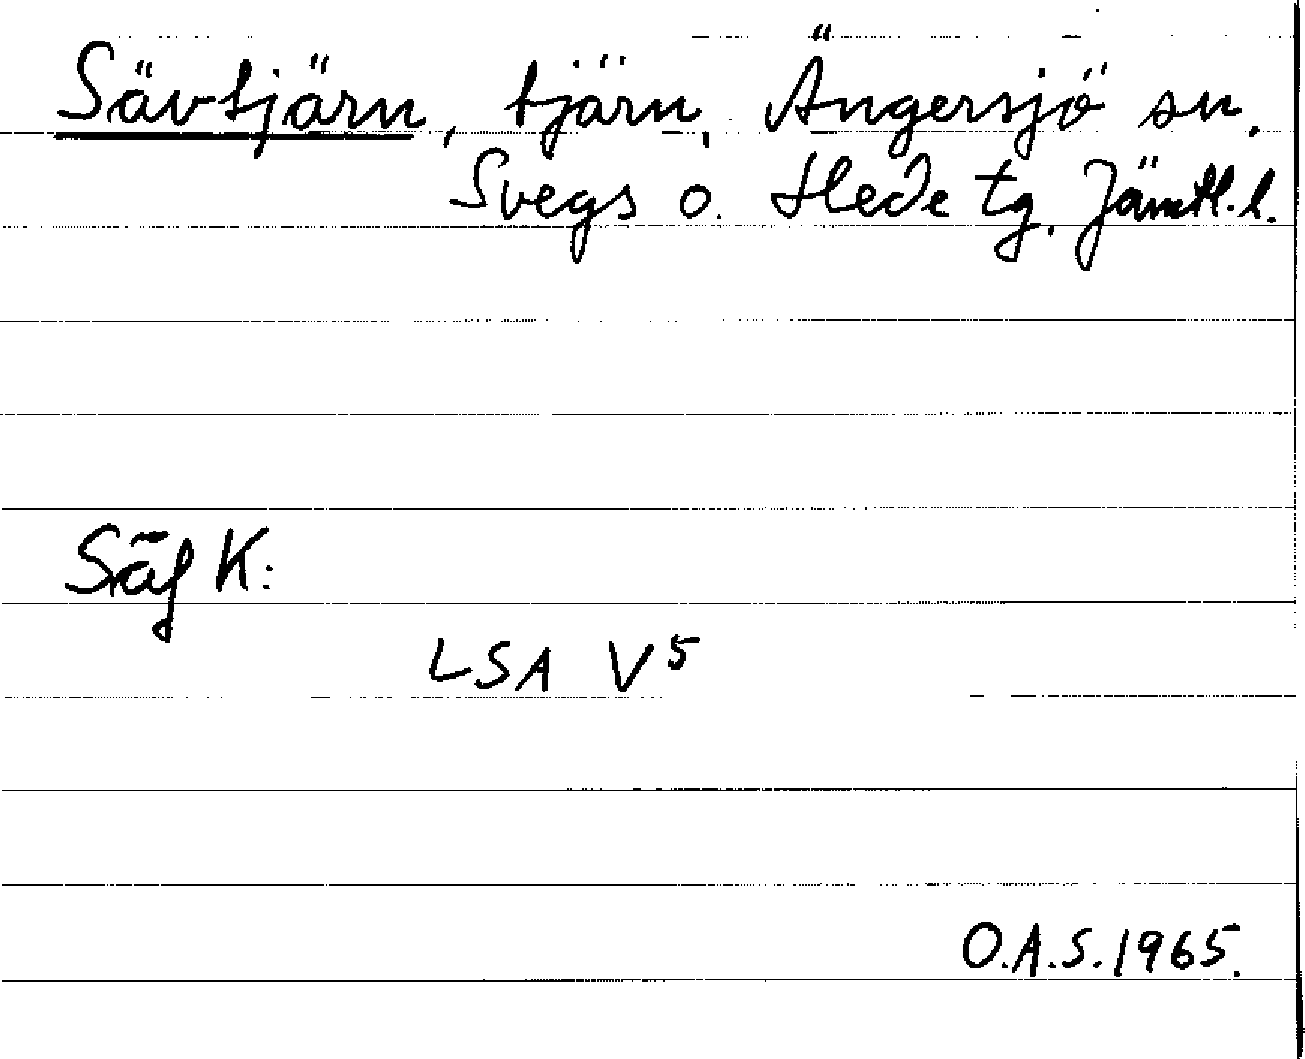 Sävtjärn, tjärn, Ängersjö sn,
Svegs o. Hede tg. Jämtl. l.
Säf K:
LSA V5
O.A.S. 1965.